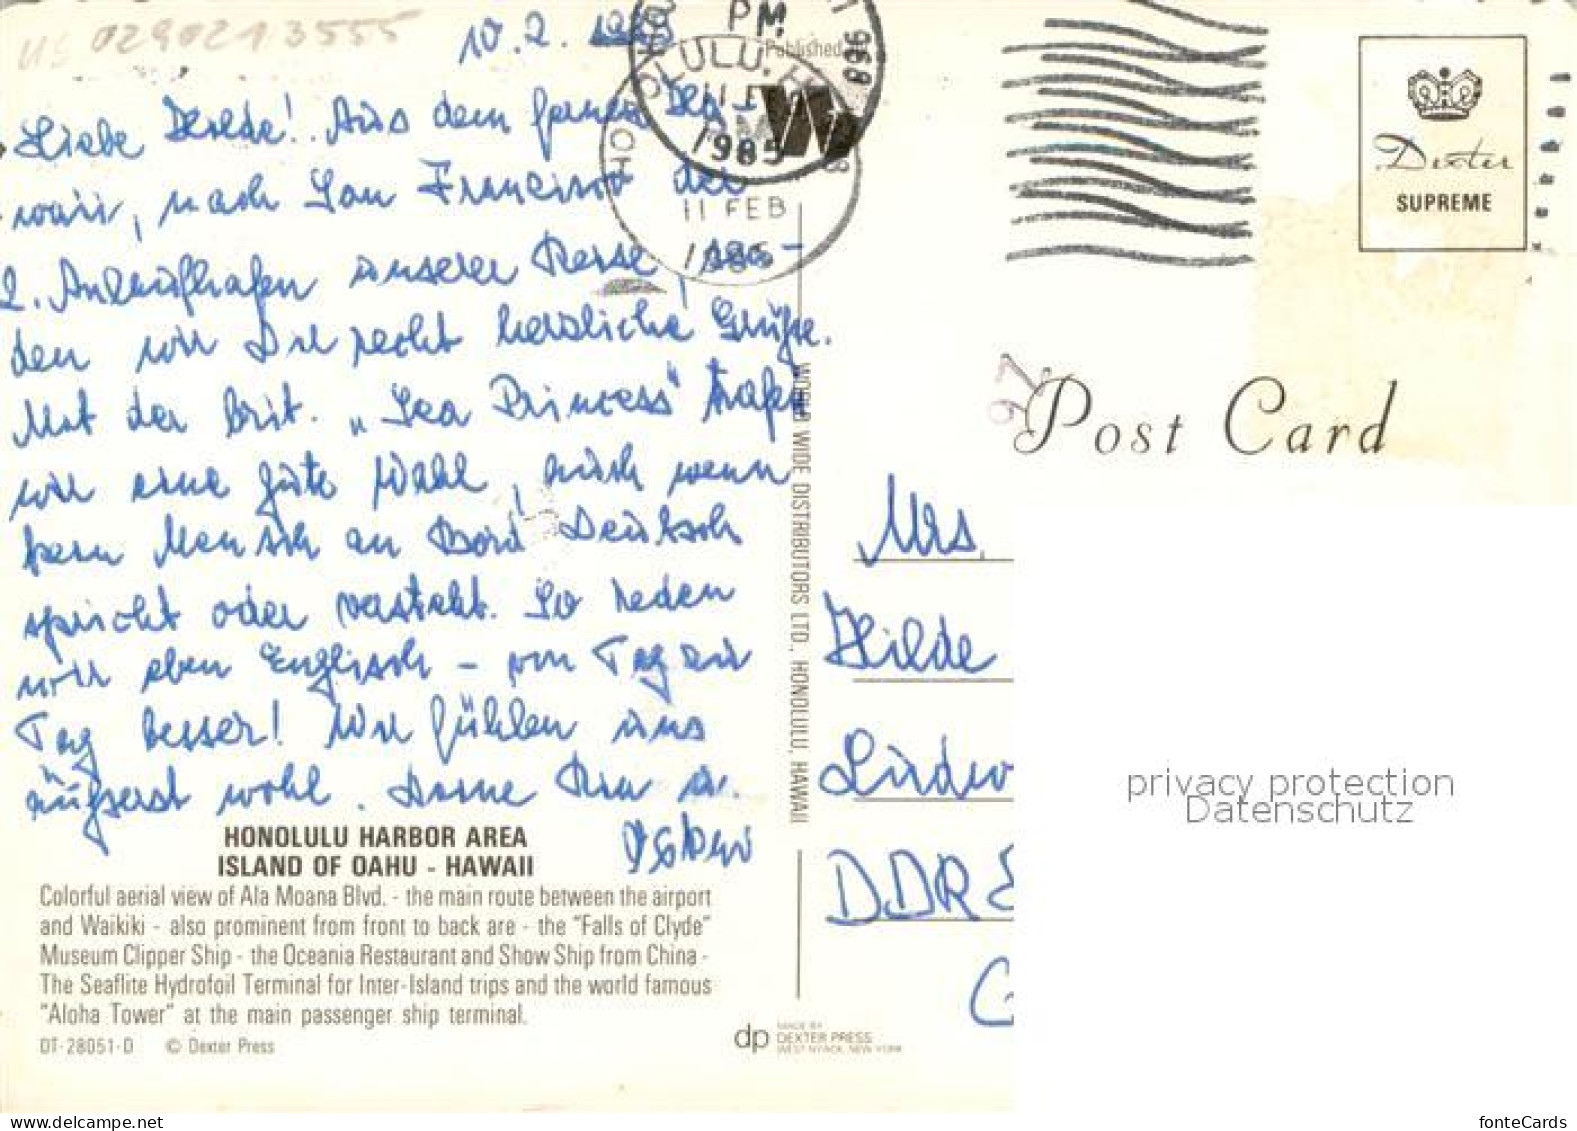 10.2.1985
Liebe Hilde! Aus dem fernen Ha-
waii, nach San Francisco der
2. Anlaufhafen unserer Reise, sen-
den wir Dir recht herzliche Grüße.
Mit der brit. „Sea Princess" trafen
wir eine gute Wahl, auch wenn
kein Mensch an Bord Deutsch
spricht oder versteht. So reden
wir eben Englisch - von Tag zu
Tag besser! Wir fühlen uns
äußerst wohl. Deine Ria u.
HONOLULU HARBOR AREA
ISLAND OF OAHU - HAWAII
Colorful aerial view of Ala Moana Blvd. - the main route between the airport
and Waikiki - also prominent from front to back are - the "Falls of Clyde"
Museum Clipper Ship - the Oceania Restaurant and Show Ship from China -
The Seaflite Hydrofoil Terminal for Inter-Island trips and the world famous
"Aloha Tower" at the main passenger ship terminal.
DT-28051-D © Dexter Press
Published
PM
11 FEB
1985
11 FEB
WORLD WIDE DISTRIBUTORS LTD., HONOLULU, HAWAII
dp MADE BY
DEXTER PRESS
WEST NYACK, NEW YORK
Dexter
SUPREME
97
Post Card
Mrs.
Hilde
Ludw
DDR
privacy protection
Datenschutz
www.delcampe.net
fonteCards